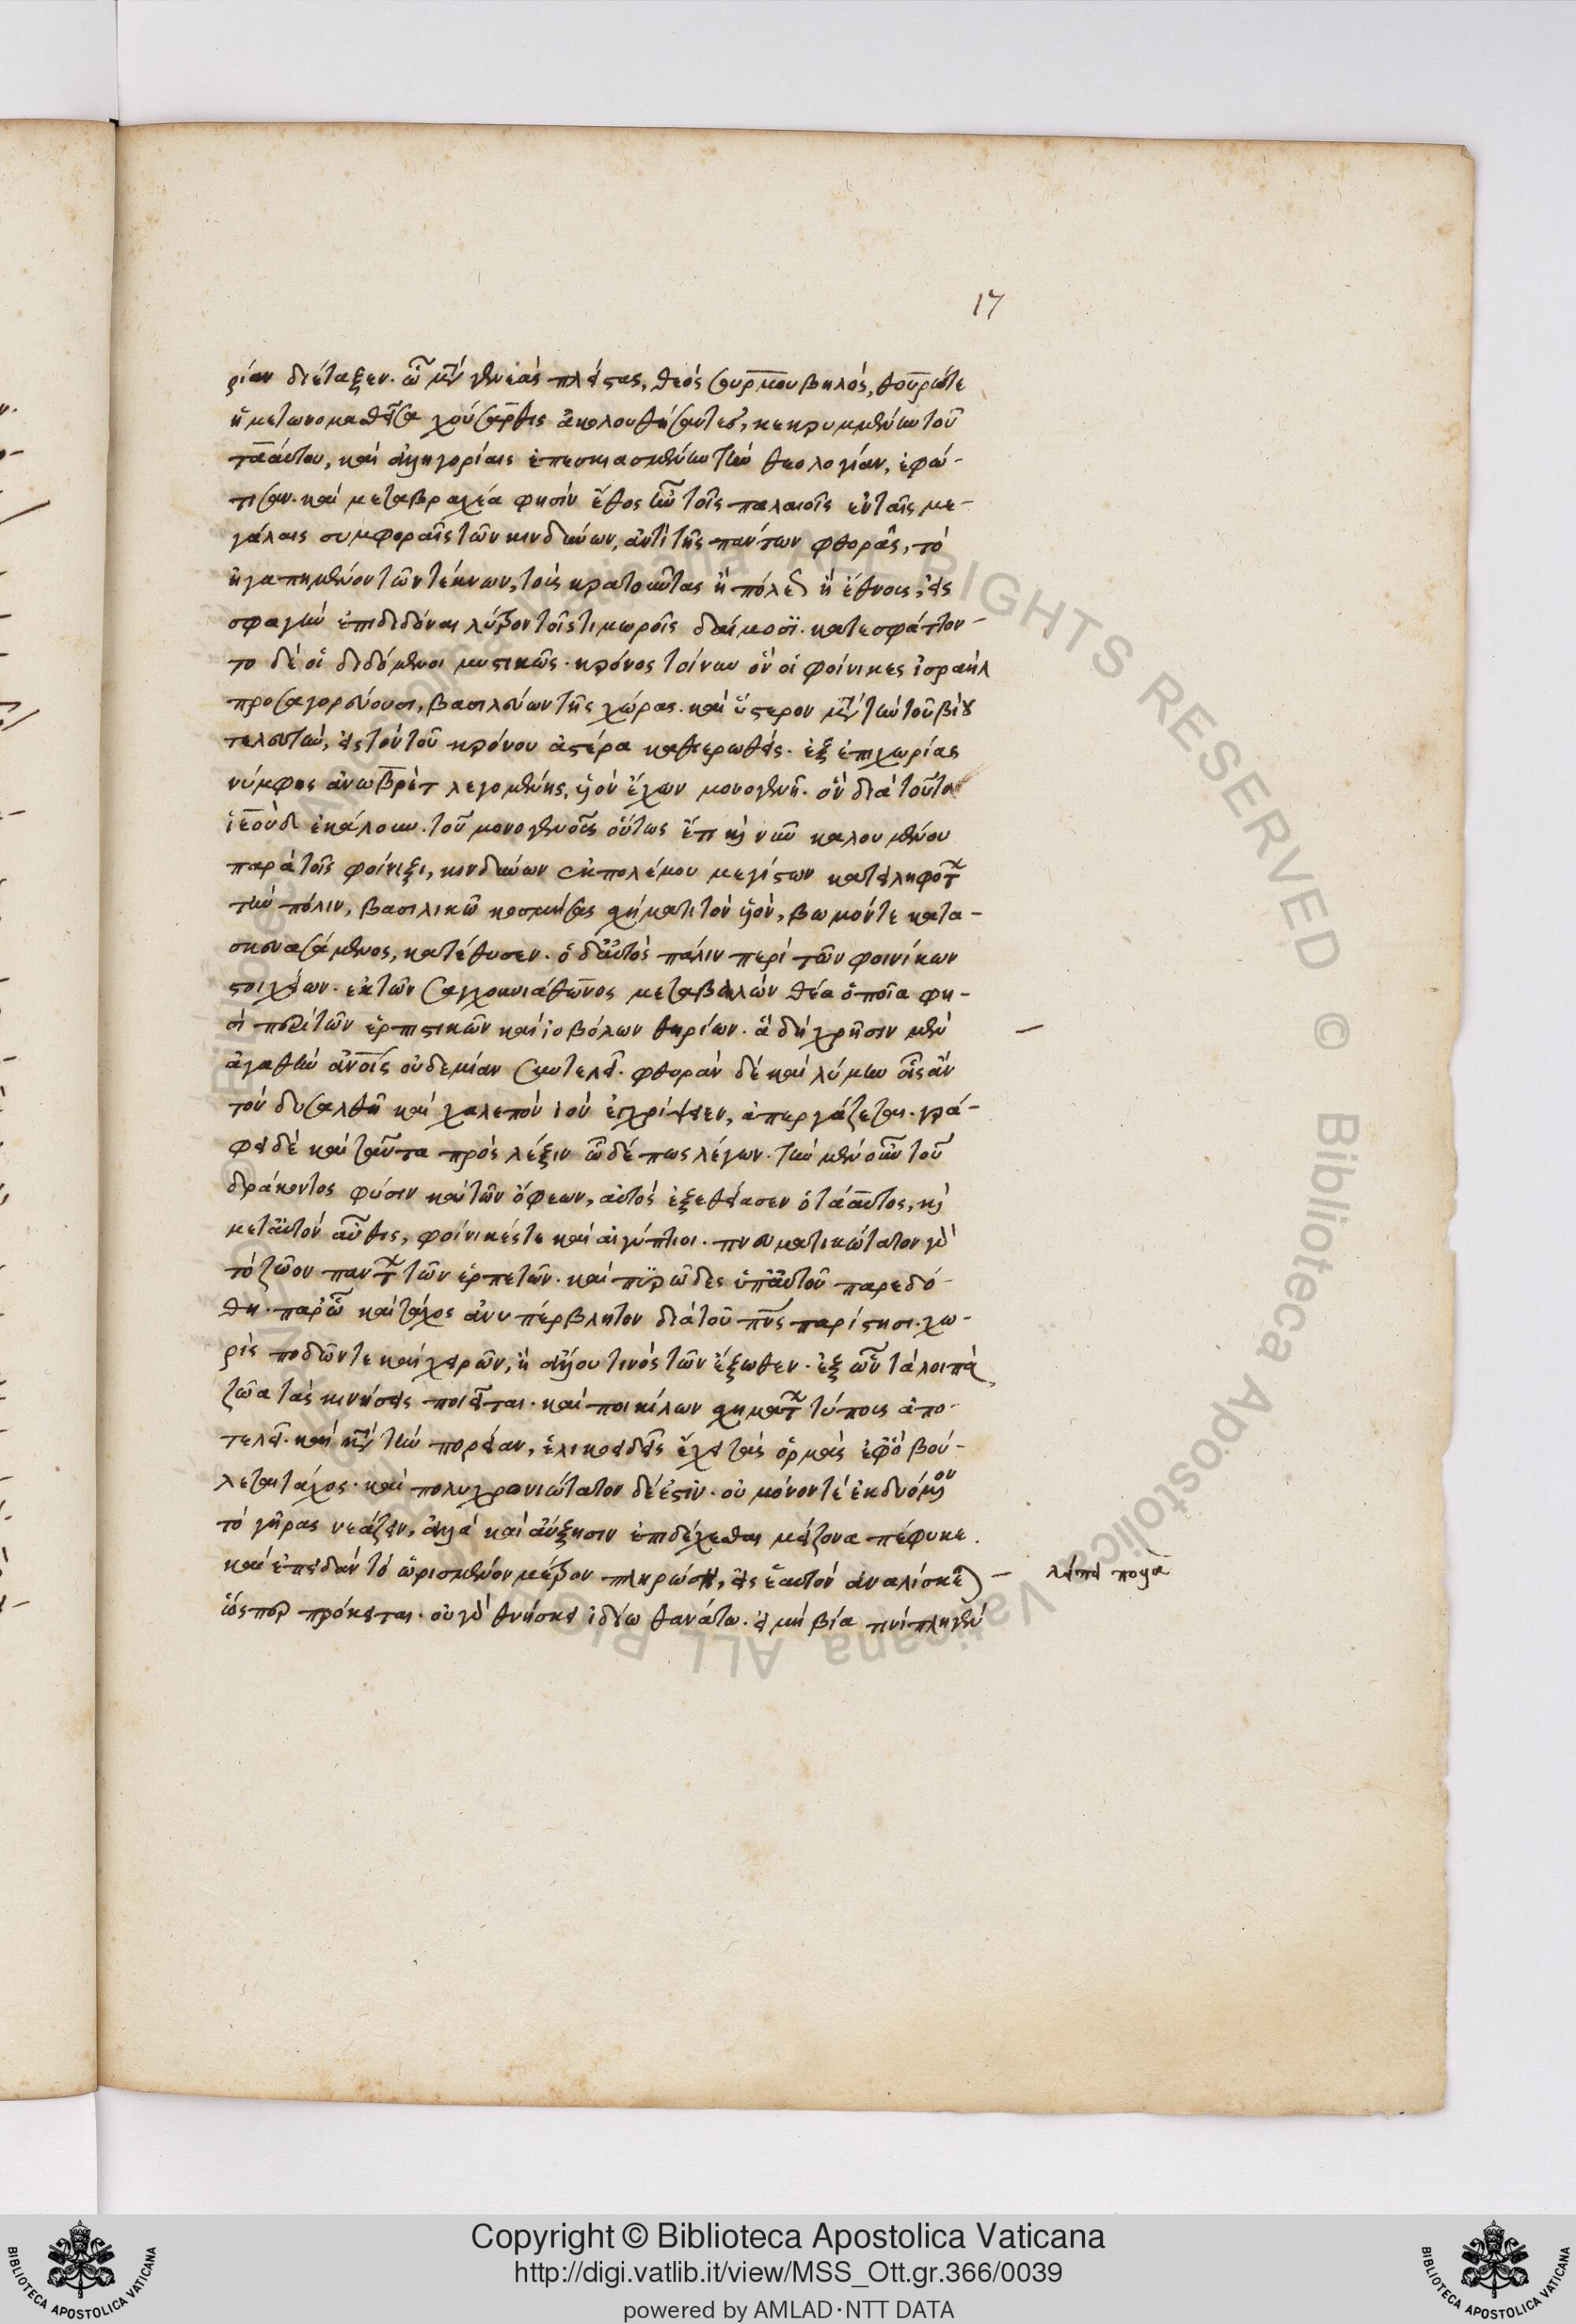 17
ρίαν διέταξεν. ᾧ μετὰ γενεὰς πλείστας, θεὸς σουρμουβηλὸς, θουρώτε
ἡ μετωνομασθεῖσα χούσαρθις ἀκολουθήσαντες, κεκρυμμένην τοῦ
τααύτου, καὶ ἀλληγορίαις ἐπεσκιασμένην τὴν θεολογίαν, ἐφώ-
τισαν. καὶ μεταβραχέα φησίν ἔθος ἦν τοῖς παλαιοῖς ἐν ταῖς με-
γάλαις συμφοραῖς τῶν κινδύνων, ἀντὶ τῆς πάντων φθορᾶς, τὸ
ἠγαπημένον τῶν τέκνων, τοὺς κρατοῦντας ἢ πόλεως ἢ ἔθνους, εἰς
σφαγὴν ἐπιδιδόναι λύτρον τοῖς τιμωροῖς δαίμοσϊ. κατεσφάττον-
το δὲ οἱ διδόμενοι μυστικῶς. κρόνος τοίνυν ὃν οἱ φοίνικες ἰσραὴλ
προσαγορεύουσι, βασιλεύων τῆς χώρας. καὶ ὕστερον μετὰ τὴν τοῦ βίου
τελευτὴν, εἰς τὸν τοῦ κρόνου ἀστέρα καθιερωθείς. ἐξ ἐπιχωρίας
νύμφης ἀνωβρὲτ λεγομένης, υἱὸν ἔχων μονογενῆ. ὃν διὰ τοῦτο
ἰεοὺδ ἐκάλουν. τοῦ μονογενοῦς οὕτως ἔτι καὶ νῦν καλουμένου
παρὰ τοῖς φοίνιξι, κινδύνων ἐκ πολέμου μεγίστων κατειληφότων
τὴν πόλιν, βασιλικῶ κοσμήσας σχήματι τὸν υἱὸν, βωμόν τε κατα-
σκευασάμενος, κατέθυσεν. ὁ δ' αὐτὸς πάλιν περὶ τῶν φοινίκων
στοιχείων. ἐκ τῶν σαγχουνιάθωνος μεταβαλὼν θέα ὁποῖα φη-
σὶ περὶ τῶν ἑρπιστικῶν καὶ ἰοβόλων θηρίων. ἃ δὴ χρῆσιν μὲν
ἀγαθὴν ἀνοίς οὐδεμίαν συντελεῖ. φθορὰν δὲ καὶ λύμην οἷς ἂν
τὸν δυσαλθῆ καὶ χαλεπὸν ἰὸν ἐγχρίψειεν, ἀπεργάζεται. γρά-
φει δὲ καὶ ταῦτα πρὸς λέξιν ὧδέ πως λέγων. τὴν μὲν οὖν τοῦ
δράκοντος φύσιν καὶ τῶν ὄφεων, αὐτὸς ἐξεθείασεν ὁ τάαυτος, καὶ
μετ' αὐτὸν αὖθις, φοίνικές τε καὶ αἰγύπτιοι. πνευματικώτατον γὰρ
τὸ ζῶον πάντων τῶν ἑρπετῶν. καὶ πϋρῶδες ὑπ' αὐτοῦ παρεδό-
θη. παρ' ᾧ καὶ τάχος ἀνυπέρβλητον διὰ τοῦ πνς παρίστησι. χω-
ρὶς ποδῶν τε καὶ χειρῶν, ἢ ἄλλου τινὸς τῶν ἔξωθεν. ἐξ ὧν τὰ λοιπὰ
ζῶα τὰς κινήσεις ποιεῖται. καὶ ποικίλων σχημάτων τύπους ἀπο-
τελεῖ. καὶ κατὰ τὴν πορείαν, ἑλικοειδεῖς ἔχει τὰς ὁρμὰς ἐφ' ὃ βού-
λεται τάχος. καὶ πολυχρονιώτατον δέ ἐστιν. οὐ μόνον τε ἐκδυόμενον
τὸ γῆρας νεάζειν, ἀλλὰ καὶ αὔξησιν ἐπιδέχεσθαι μείζονα πέφυκε.
καὶ ἐπειδὰν τὸ ὡρισμένον μέτρον πληρώσῃ, εἰς ἑαυτὸν ἀναλίσκεται
ὥσπερ πρόκειται. οὐ γὰρ θνήσκει ἰδίω θανάτω. εἰ μὴ βία τινὶ πληγὲν
λείπει πολλὰ